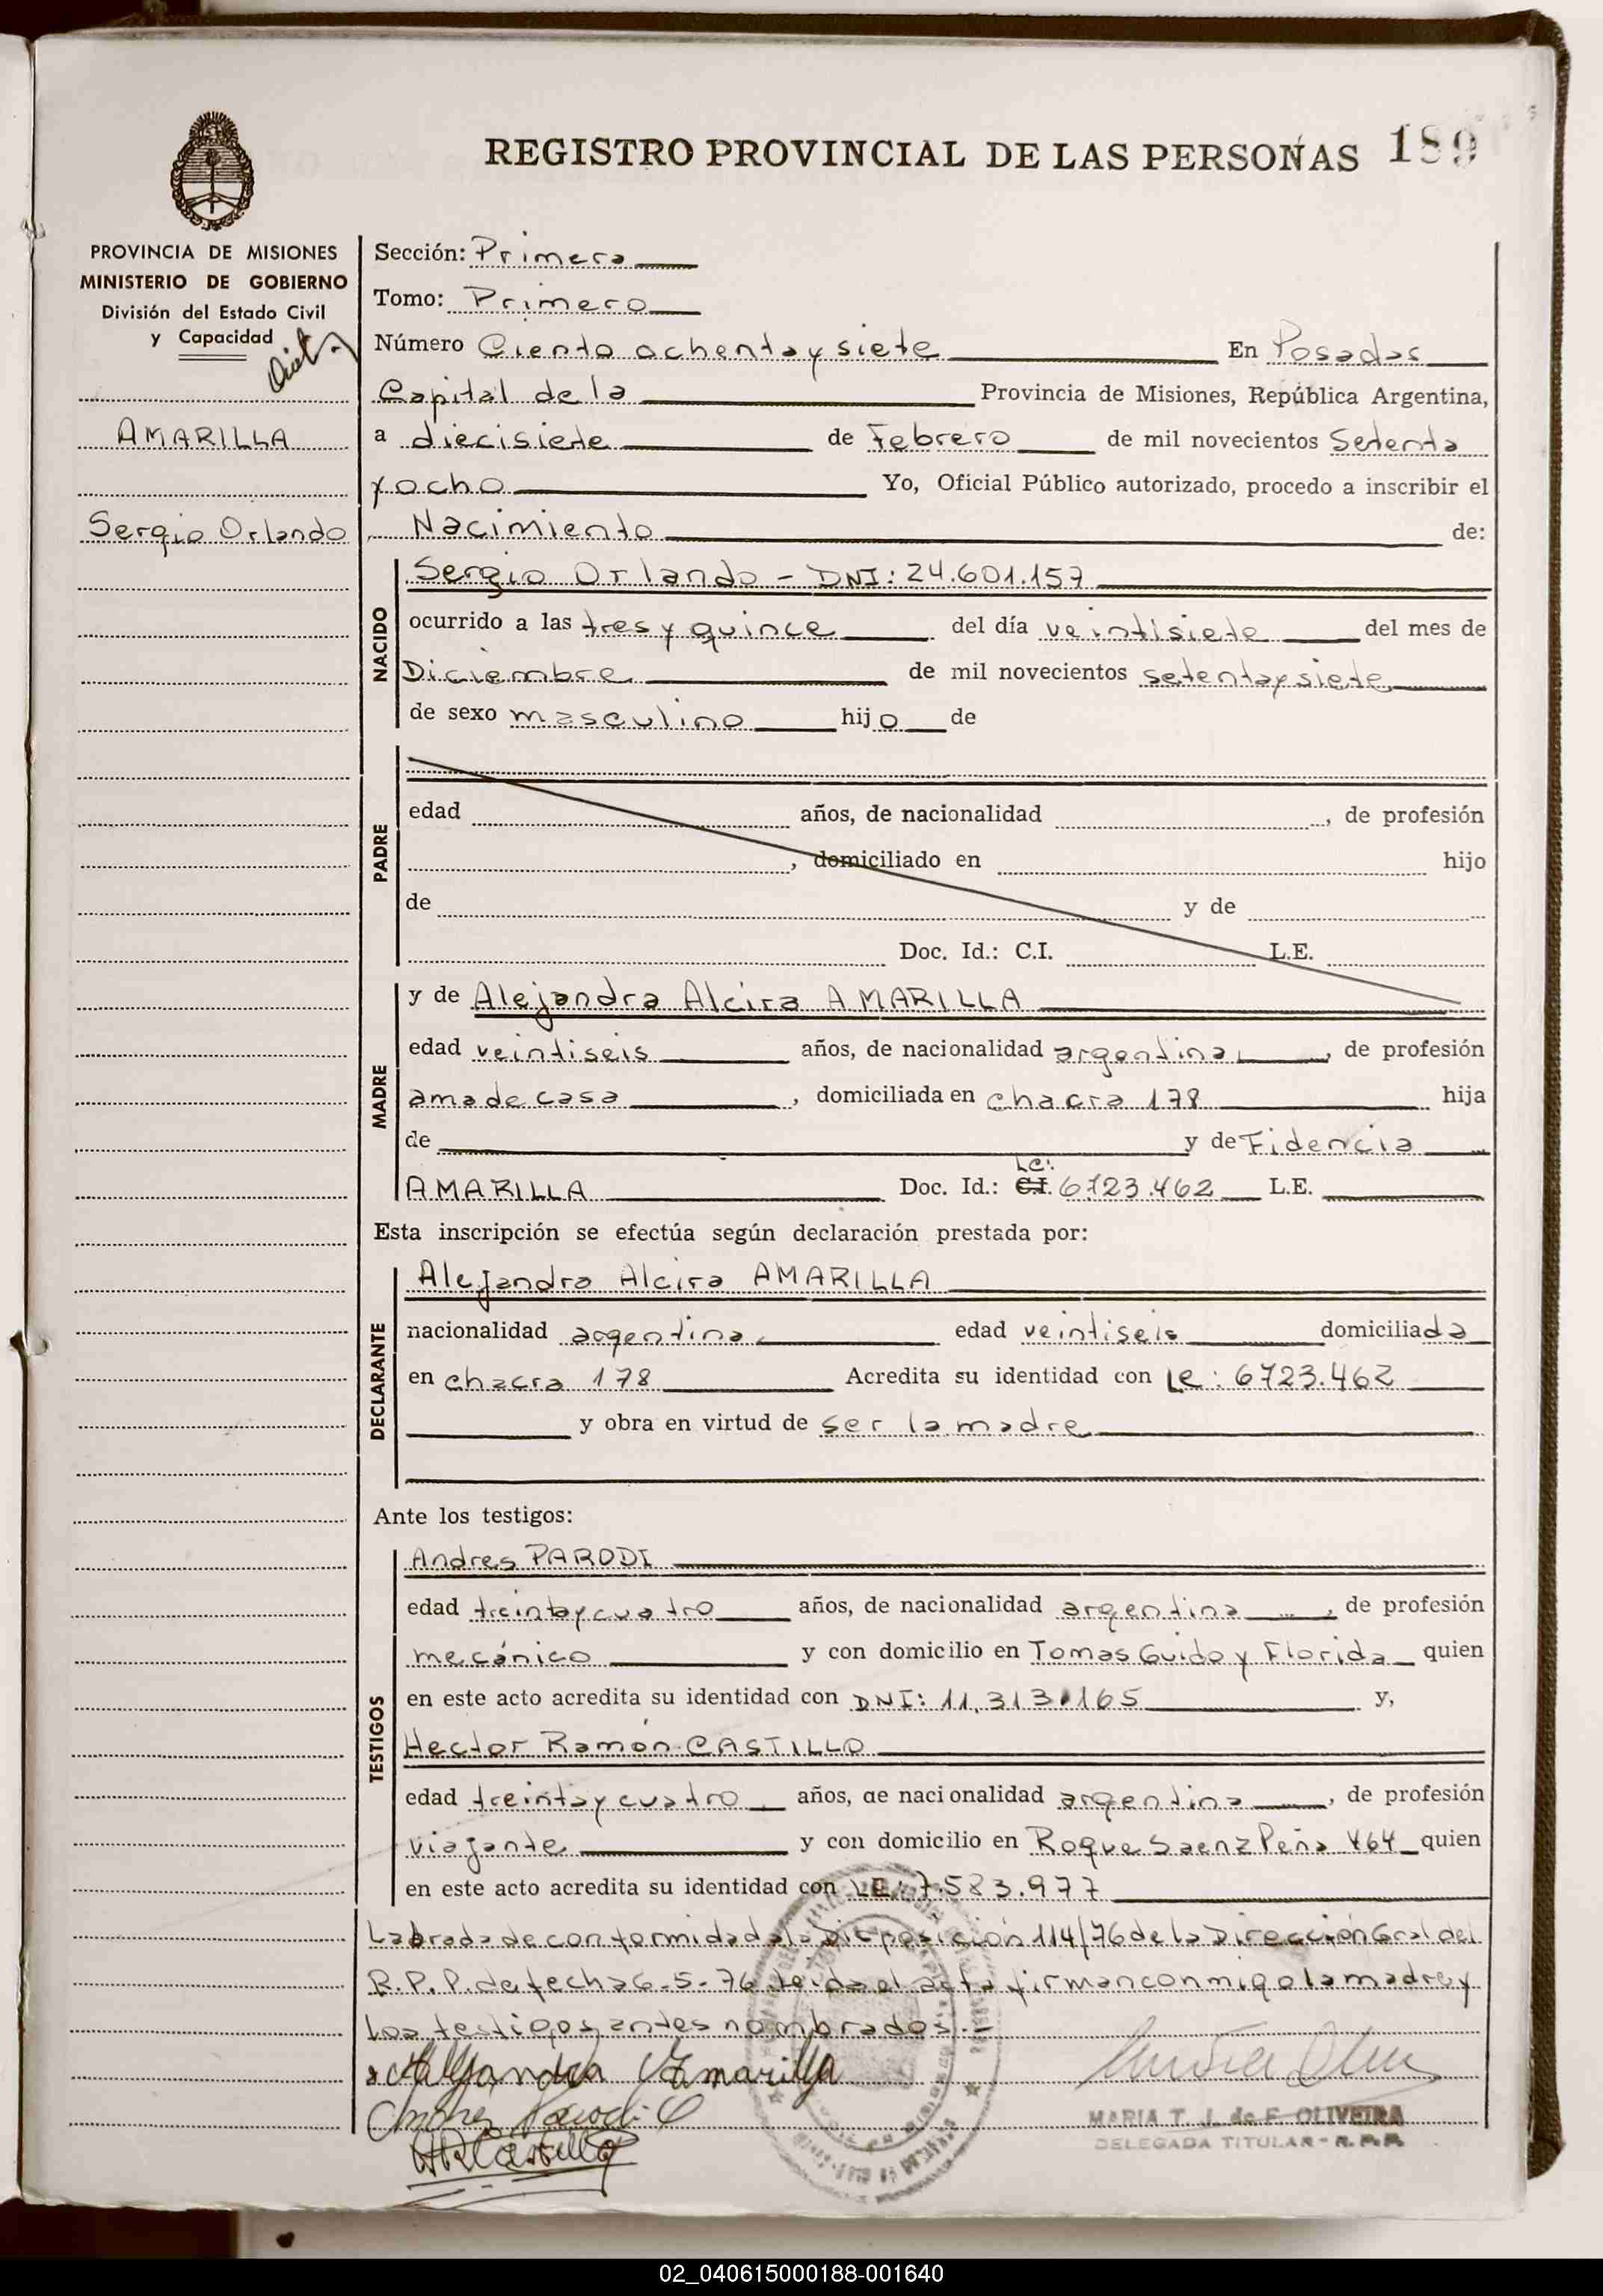 REGISTRO PROVINCIAL DE LAS PERSONAS 189
PROVINCIA DE MISIONES
MINISTERIO DE GOBIERNO
División del Estado Civil
y Capacidad
AMARILLA
Sergio Orlando
Sección: Primera
Tomo: Primero
Número Ciento ochenta y siete En Posadas
Capital de la Provincia de Misiones, República Argentina,
a diecisiete de Febrero de mil novecientos Setenta
y ocho Yo, Oficial Público autorizado, procedo a inscribir el
Nacimiento de:
NACIDO
Sergio Orlando - DNI: 24.601.157
ocurrido a las tres y quince del día veintisiete del mes de
Diciembre de mil novecientos setenta y siete
de sexo masculino hijo de
PADRE
edad años, de nacionalidad , de profesión
, domiciliado en hijo
de y de
Doc. Id.: C.I. L.E.
MADRE
y de Alejandra Alcira AMARILLA
edad veintiseis años, de nacionalidad argentina, de profesión
ama de casa , domiciliada en chacra 178 hija
de y de Fidencia
LC:
AMARILLA Doc. Id.: C.I. 6723.462 L.E.
Esta inscripción se efectúa según declaración prestada por:
DECLARANTE
Alejandra Alcira AMARILLA
nacionalidad argentina edad veintiseis domiciliada
en chacra 178 Acredita su identidad con LC: 6723.462
y obra en virtud de ser la madre
Ante los testigos:
TESTIGOS
Andres PARODI
edad treinta y cuatro años, de nacionalidad argentina , de profesión
mecánico y con domicilio en Tomas Guido y Florida quien
en este acto acredita su identidad con DNI: 11.313.165 y,
Hector Ramón CASTILLO
edad treinta y cuatro años, de nacionalidad argentina , de profesión
viajante y con domicilio en Roque Saenz Peña 464 quien
en este acto acredita su identidad con LE: 7.583.977
Labrada de conformidad a la Disposición 114/76 de la Dirección Gral del
R.P.P. de fecha 6-5-76 leida el acta firman conmigo la madre y
los testigos antes nombrados.-
Alejandra Amarilla
Andres Parodi
HRCastillo
MARIA T. J. de F. OLIVEIRA
DELEGADA TITULAR - R.P.P.
02_040615000188-001640